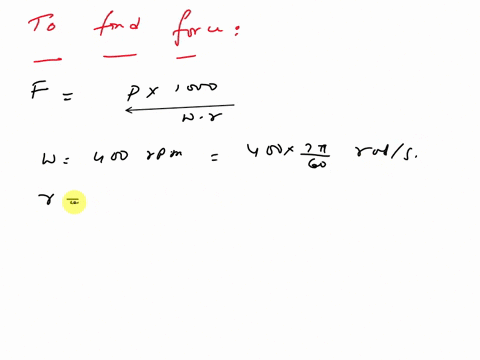 To find force:
F = P × 1000 / w·r
w = 400 rpm = 400 × 2π/60 rad/s.
r =